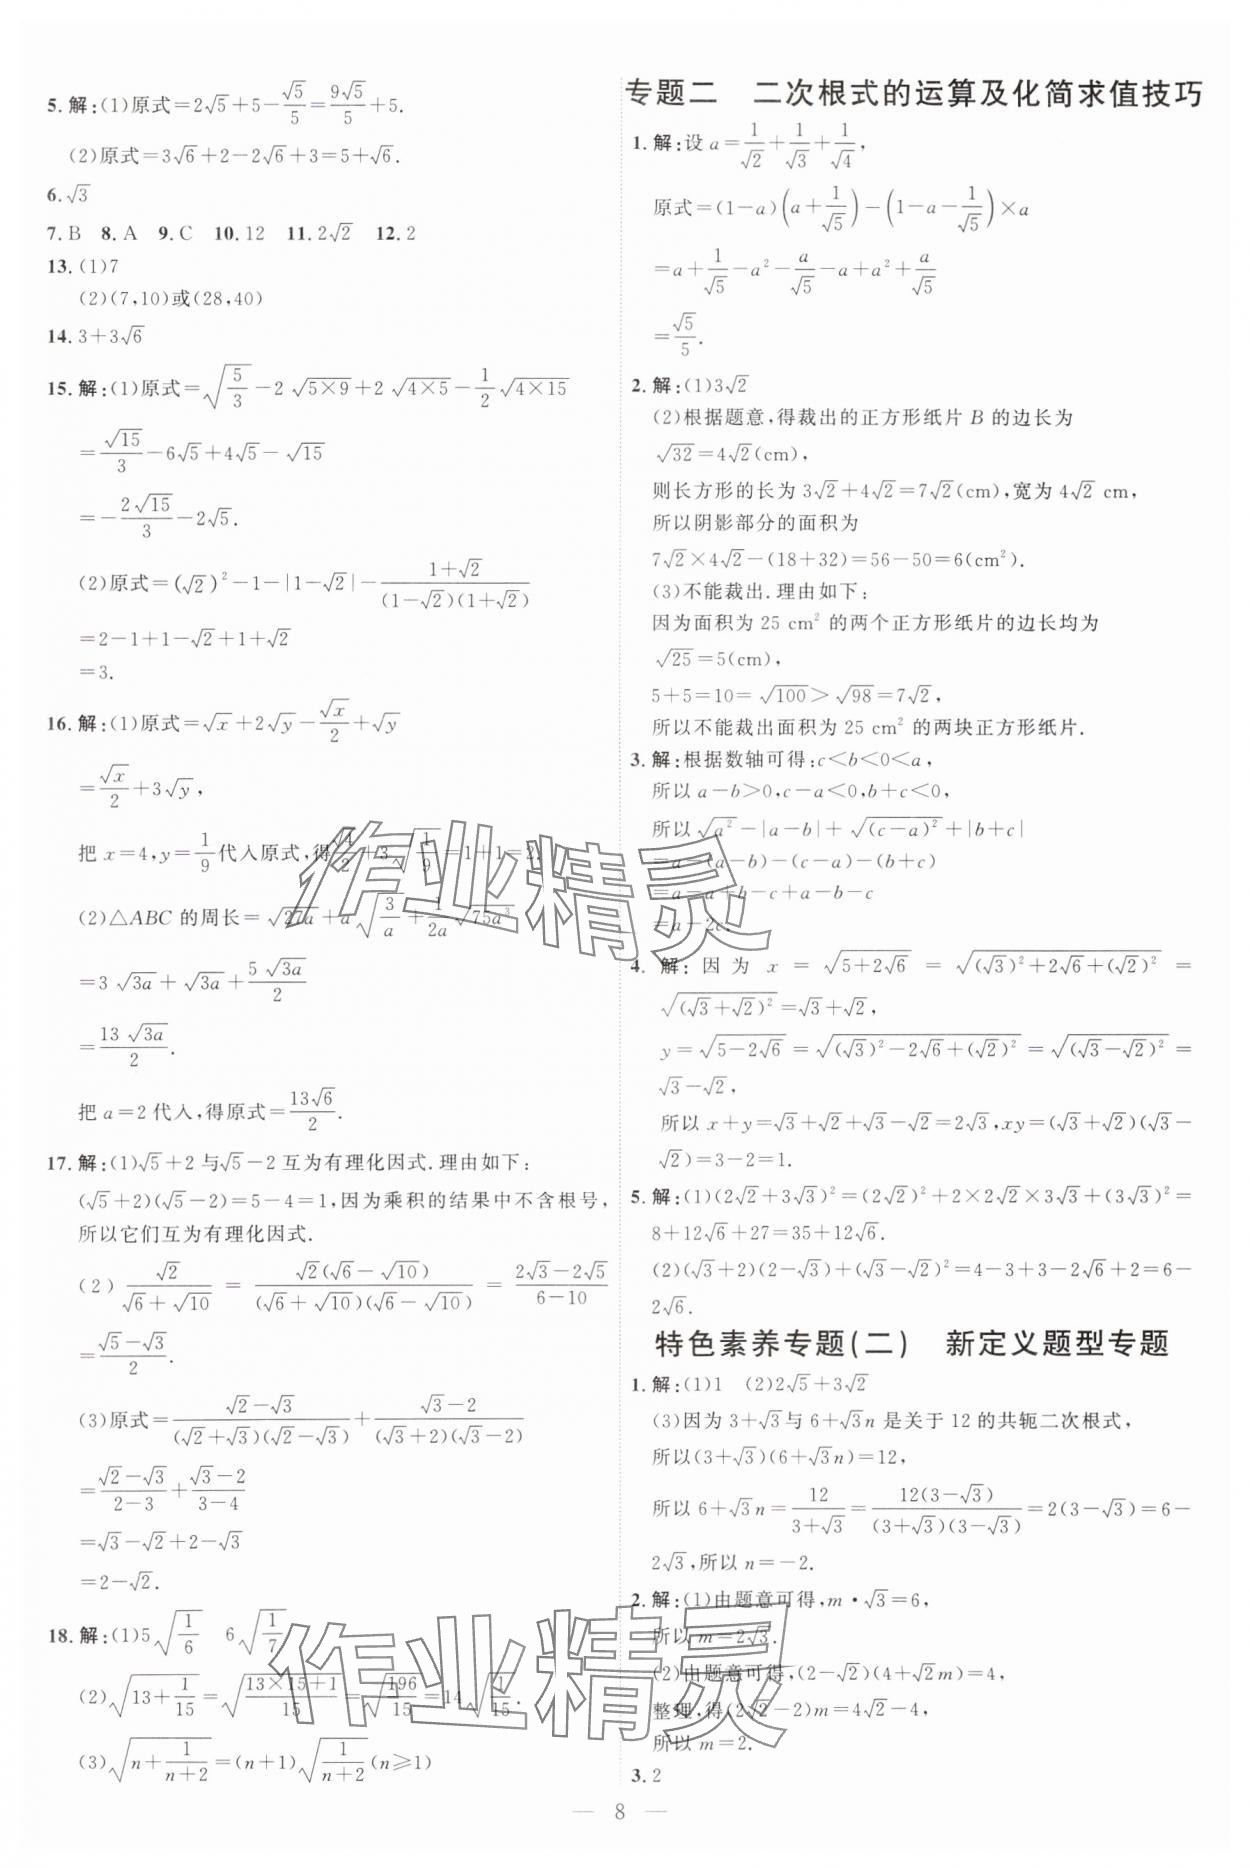 5. 解:(1)原式=2√5+5-√5/5=9√5/5+5.
(2)原式=3√6+2-2√6+3=5+√6.
6. √3
7. B 8. A 9. C 10. 12 11. 2√2 12. 2
13. (1)7
(2)(7,10)或(28,40)
14. 3+3√6
15. 解:(1)原式=√(5/3)-2√(5×9)+2√(4×5)-1/2√(4×15)
=√15/3-6√5+4√5-√15
=-2√15/3-2√5.
(2)原式=(√2)²-1-|1-√2|-(1+√2)/((1-√2)(1+√2))
=2-1+1-√2+1+√2
=3.
16. 解:(1)原式=√x+2√y-√x/2+√y
=√x/2+3√y,
把 x=4,y=1/9代入原式,得√4/2+3√(1/9)=1+1=2.
(2)△ABC 的周长=√(27a)+a√(3/a)+1/(2a)√(75a³)
=3√(3a)+√(3a)+5√(3a)/2
=13√(3a)/2.
把 a=2 代入,得原式=13√6/2.
17. 解:(1)√5+2 与√5-2 互为有理化因式.理由如下:
(√5+2)(√5-2)=5-4=1,因为乘积的结果中不含根号,
所以它们互为有理化因式.
(2) √2/(√6+√10) = √2(√6-√10)/((√6+√10)(√6-√10)) = (2√3-2√5)/(6-10)
=(√5-√3)/2.
(3)原式=(√2-√3)/((√2+√3)(√2-√3))+(√3-2)/((√3+2)(√3-2))
=(√2-√3)/(2-3)+(√3-2)/(3-4)
=√3-√2+2-√3
=2-√2.
18. 解:(1)5√(1/6) 6√(1/7)
(2)√(13+1/15)=√((13×15+1)/15)=√(196/15)=14√(1/15).
(3)√(n+1/(n+2))=(n+1)√(1/(n+2))(n≥1)
专题二 二次根式的运算及化简求值技巧
1. 解:设 a=1/√2+1/√3+1/√4,
原式=(1-a)(a+1/√5)-(1-a-1/√5)×a
=a+1/√5-a²-a/√5-a+a²+a/√5
=√5/5.
2. 解:(1)3√2
(2)根据题意,得裁出的正方形纸片 B 的边长为
√32=4√2(cm),
则长方形的长为 3√2+4√2=7√2(cm),宽为 4√2 cm,
所以阴影部分的面积为
7√2×4√2-(18+32)=56-50=6(cm²).
(3)不能裁出.理由如下:
因为面积为 25 cm² 的两个正方形纸片的边长均为
√25=5(cm),
5+5=10=√100>√98=7√2,
所以不能裁出面积为 25 cm² 的两块正方形纸片.
3. 解:根据数轴可得:c<b<0<a,
所以 a-b>0,c-a<0,b+c<0,
所以√a²-|a-b|+√(c-a)²+|b+c|
=a-(a-b)-(c-a)-(b+c)
=a-a+b-c+a-b-c
=a-2c.
4. 解: 因为 x = √(5+2√6) = √((√3)²+2√6+(√2)²) =
√((√3+√2)²)=√3+√2,
y=√(5-2√6)=√((√3)²-2√6+(√2)²)=√((√3-√2)²)=
√3-√2,
所以 x+y=√3+√2+√3-√2=2√3,xy=(√3+√2)(√3-
√2)=3-2=1.
5. 解:(1)(2√2+3√3)²=(2√2)²+2×2√2×3√3+(3√3)²=
8+12√6+27=35+12√6.
(2)(√3+2)(2-√3)+(√3-√2)²=4-3+3-2√6+2=6-
2√6.
特色素养专题(二) 新定义题型专题
1. 解:(1)1 (2)2√5+3√2
(3)因为 3+√3与 6+√3n 是关于 12 的共轭二次根式,
所以(3+√3)(6+√3n)=12,
所以 6+√3n=12/(3+√3)=12(3-√3)/((3+√3)(3-√3))=2(3-√3)=6-
2√3,所以 n=-2.
2. 解:(1)由题意可得,m·√3=6,
所以 m=2√3.
(2)由题意可得,(2-√2)(4+√2m)=4,
整理,得(2√2-2)m=4√2-4,
所以 m=2.
3. 2
— 8 —
作业精灵
作业精灵